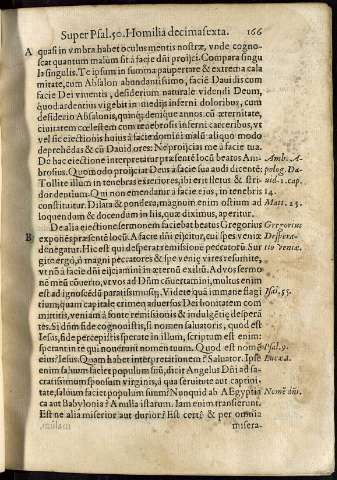 Super Psal.50. Homilia decimasexta. 166
A quasi in vmbra habet oculus mentis nostræ, vnde cogno-
scat quantum malum sit à facie dñi proijci. Compara singu
la singulis. Te ipsum in summa paupertate & extrema cala
mitate, cum Absalon abundantissimo, faciē Dauidis cum
facie Dei viuentis, desiderium naturale videndi Deum,
quod ardentius vigebit in medijs inferni doloribus, cum
desiderio Absalonis, quinq; denique annos cū æternitate,
ciuitatem cœlestem cum tenebrosis inferni carceribus, vt
vel sic eiectionis huius à facie domini malū aliquo modo
deprehēdas & cū Dauid ores: Ne proijcias me à facie tua.
De hac eiectione interpretatur præsentē locū beatus Am- Amb. A-
brosius. Quomodo proijciat Deus à facie sua audi dicentē: polog. Da-
Tollite illum in tenebras exteriores, ibi erit fletus & stri uid. 2. cap.
dor dentium. Qui non emendantur à facie eius, in tenebris 14.
constituitur. Dilata & pondera, magnum enim ostium ad Mat. 25.
loquendum & docendum in his, quæ diximus, aperitur.
De alia eiectione sermonem faciebat beatus Gregorius Gregorius
B exponēs præsentē locū. A facie dñi eijcitur, cui spes veniæ Despera-
denegatur. Hic est qui desperat remissionē peccatorū Sur tio veniæ.
gite ergò, ò magni peccatores & spe venię vires resumite,
vt nō à facie dñi eijciamini in æternū exiliū. Ad vos sermo
nē meū cōuerto, vt vos ad Dñm cōuertamini, multus enim
est ad ignoscēdū paratissimusq;. Videte quā immane flagi Isai. 55.
tium, quam capitale crimen aduersus Dei bonitatem com
mittitis, veniam à fonte remissionis & indulgētię desperā
tes. Si dñm side cognouistis, si nomen saluatoris, quod est
Iesus, fide percepistis sperate in illum, scriptum est enim:
sperant in te qui nouerunt nomen tuum. Quod est nomē Psal. 9.
eius? Iesus. Quam habet interpretationem? Saluator. Ipse Luc. 2.
enim saluum faciet populum suū, dicit Angelus Dñi ad sa-
cratissimum sponsum virginis, à qua seruitute aut captiui
tate, saluum faciet populum suum? Nunquid ab AEgyptia Nomē dñi.
ca aut Babylonia? A nulla istarum. Iam enim transierunt.
Est ne alia miserior aut durior? Est certè & per omnia
misera-